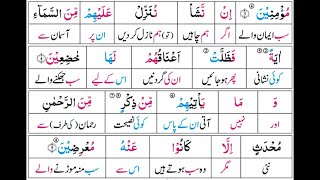 مُؤْمِنِیْنَ ③ اِنْ نَّشَاْ نُنَزِّلْ عَلَیْهِمْ مِّنَ السَّمَآءِ
سب ایمان والے اگر ہم چاہیں (تو) ہم نازل کر دیں ان پر آسمان سے
اٰیَةً فَظَلَّتْ اَعْنَاقُهُمْ لَهَا خٰضِعِیْنَ ④
کوئی نشانی پھر ہو جائیں ان کی گردنیں اس کے لیے سب جھکنے والے
وَ مَا یَاْتِیْهِمْ مِّنْ ذِكْرٍ مِّنَ الرَّحْمٰنِ
اور نہیں آتی ان کے پاس کوئی نصیحت رحمان (کی طرف) سے
مُحْدَثٍ اِلَّا كَانُوْا عَنْهُ مُعْرِضِیْنَ ⑤
نئی مگر وہ سب ہوتے ہیں اس سے سب منہ موڑنے والے